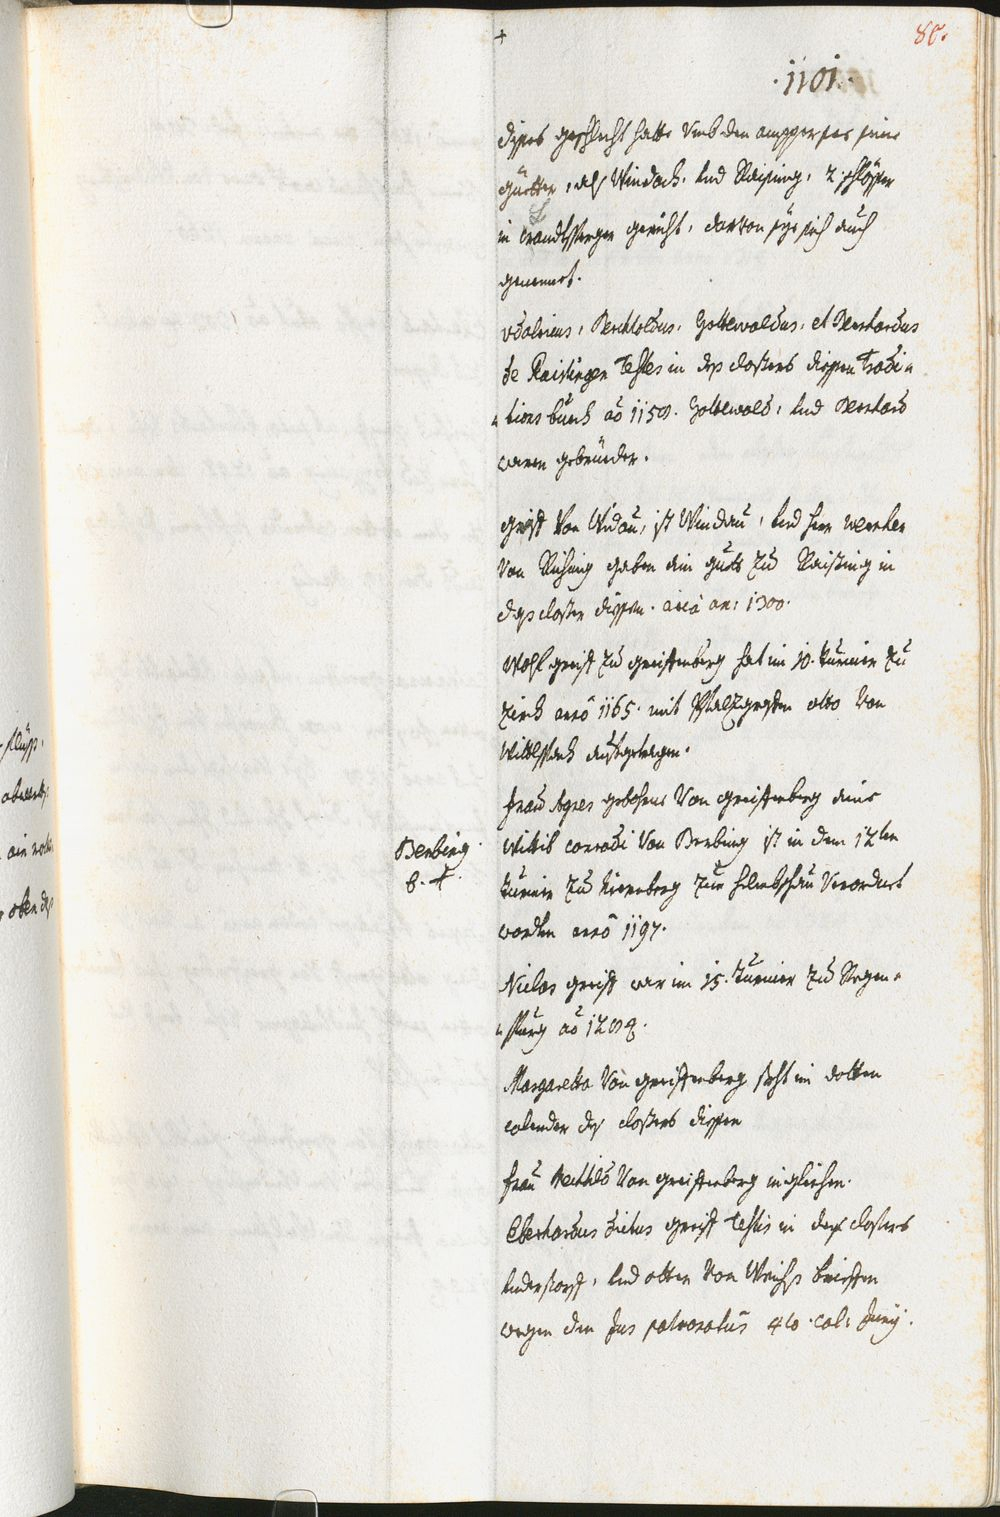 +
86.
.1101.
dises geschlecht hatte Umb den ampersee seine
güetter, als Windach, und Raising, 2 schlösser
in Landtsperger gericht, darvon sye sich auch
genennet.
Udalricus, Berchtoldus, Gottewaldus, et Bernhardus
de Raisingen Testes in des closters diessen Tradi-
tions buech ao 1150. Gottewald, und Bernhard
waren gebrüeder.
greiff Von Widau, ist Windau, und herr wernher
Von Rising gaben ain guett zu Raising in
das closter diessen. circa an: 1300.
Wolf greiff zu greiffenberg hat im 10. turnier zu
Zirch anno 1165. mit Pfalzgrafen otto Von
Wittlspach aufgetragen.
frau Agnes gebohrne Von greiffenberg eine
Wittib conradi Von Berbing ist in dem 12ten
turnier zu Nürnberg zur helmbschau Verordnet
worden anno 1197.
Berbing.
B. +.
Niclas greiff war im 15. turnier zu Regen-
spurg ao
Margaretha Von greiffenberg steht im Totten
calender des closters diessen
frau Mechtild Von greiffenberg ingleichen.
Eberhardus dictus greiff Testis in des closters
understorff, und otten Von Weichs brieffen
wegen den Jus patronatus 4to. cal: Junij.